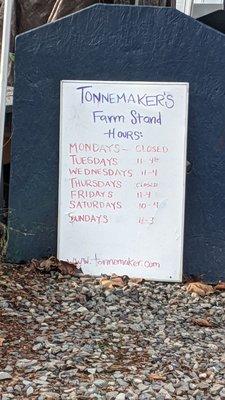 TONNEMAKER'S
Farm Stand
HOURS:
MONDAYS - CLOSED
TUESDAYS 11-4
WEDNESDAYS 11-4
THURSDAYS CLOSED
FRIDAYS 11-4
SATURDAYS 10-4
SUNDAYS 11-3
www.tonnemaker.com